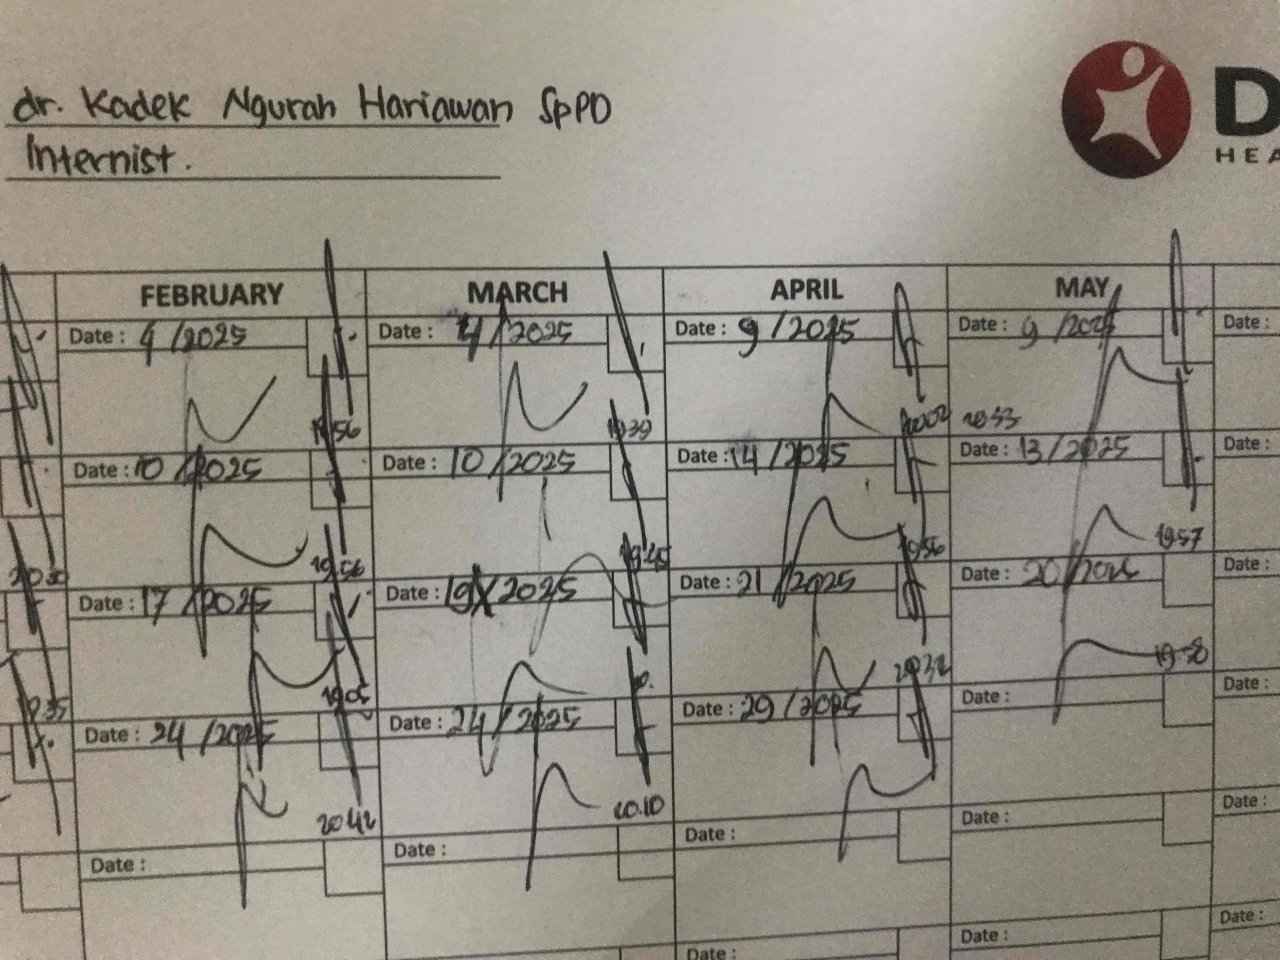 dr. Kadek Ngurah Hariawan SpPD
Internist.
D
HEA
FEBRUARY MARCH APRIL MAY
Date : 4 /2025 Date : 4 /2025 Date : 9 /2025 Date : 9 /2025 Date :
19.56 19.39 20.02 20.53
Date : 10 /2025 Date : 10 /2025 Date : 14 /2025 Date : 13 /2025 Date :
19.56 19.45 19.56 19.57
Date : 17 /2025 Date : 19 /2025 Date : 21 /2025 Date : 20 /2025 Date :
19.35 19.05 20.32 19.58
Date : 24 /2025 Date : 24 /2025 Date : 29 /2025 Date : Date :
20.42 20.10
Date : Date : Date : Date : Date :
Date : Date : Date :